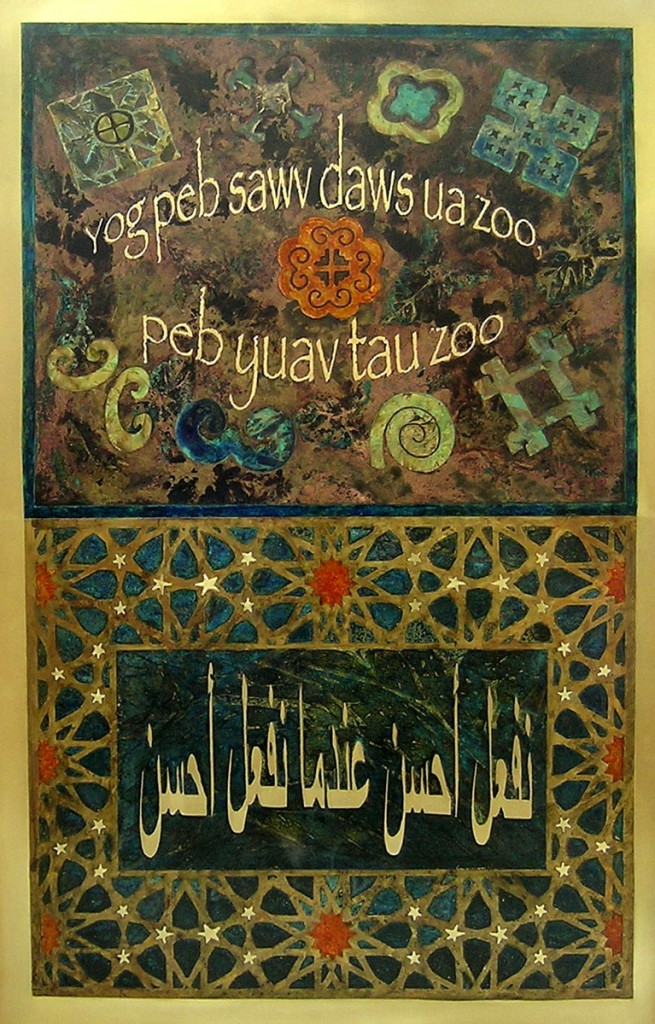 yog peb sawv daws ua zoo,
peb yuav tau zoo
نفعل أحسن عندما نفعل أحسن